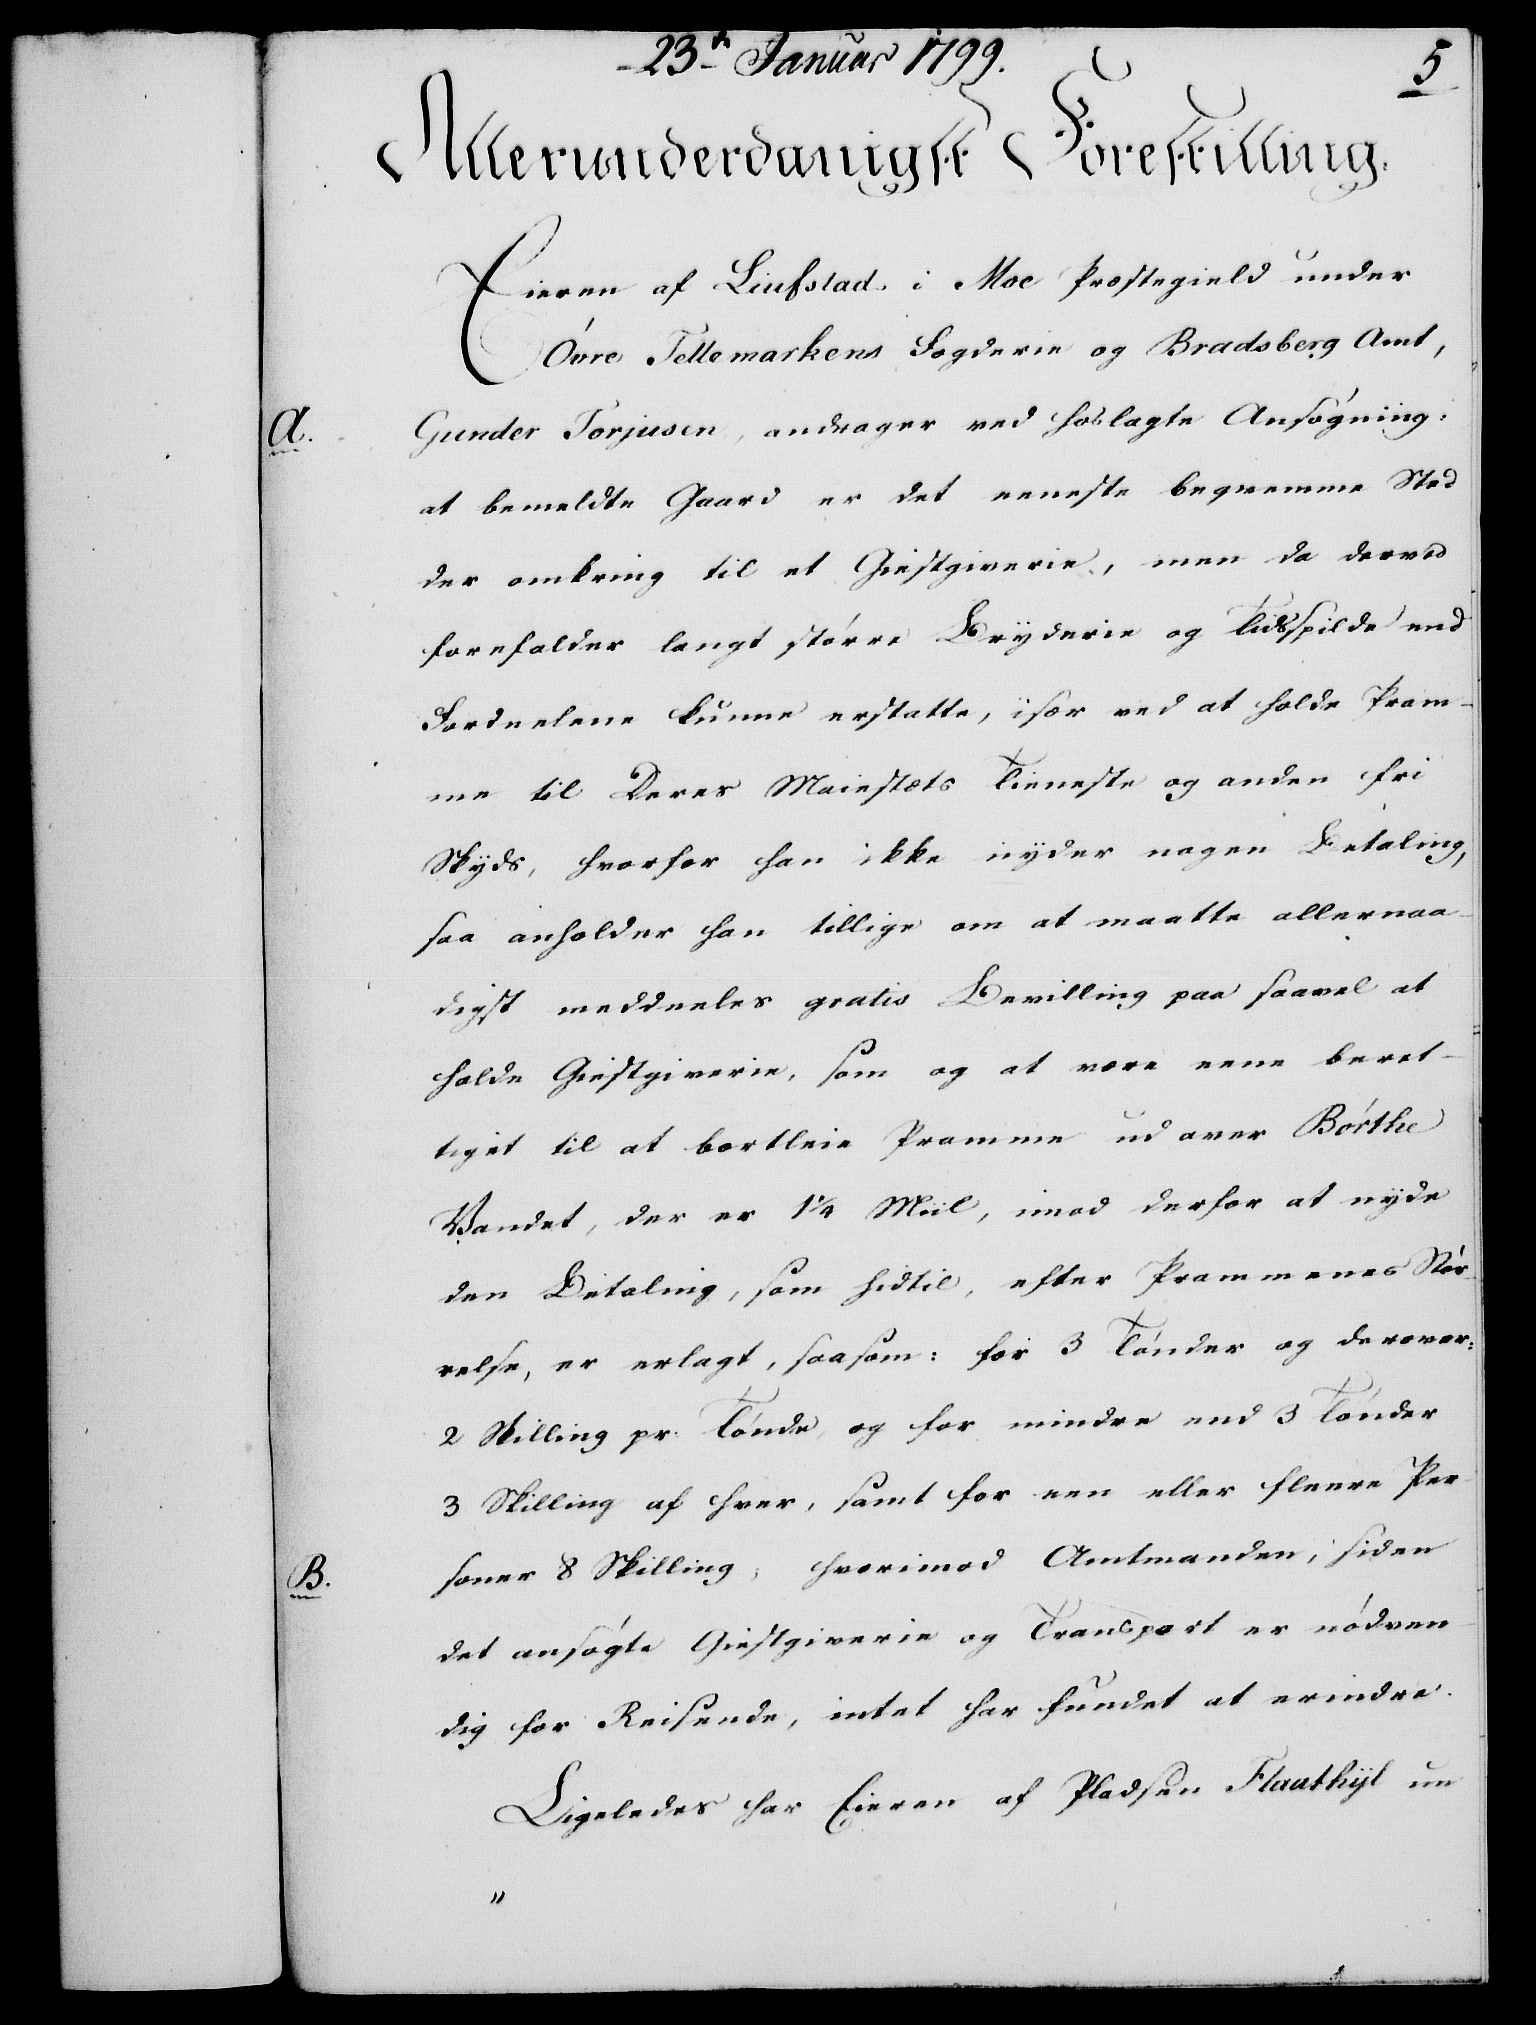 23de Januar 1799.
5
Allerunderdanigst Forestilling.
Eieren af Liufstad i Moe Præstegield under
Óvre Tellemarkens Fogderie og Bradsberg Amt,
A.
Gunder Torjusen, andrager ved hoslagte Ansógning:
at bemeldte Gaard er det eeneste beqvemme Sted
der omkring til et Giestgiverie, men da derved
forefalder langt stórre Bryderie og Tidsspilde end
Fordeelene kunne erstatte, især ved at holde Pram-
me til Deres Maiestæts Tieneste og anden fri
Skyds, hvorfor han ikke nyder nogen Betaling,
saa anholder han tillige om at maatte allernaa-
digst meddeeles gratis Bevilling paa saavel at
holde Giestgiverie, som og at være eene beret-
tiget til at bortleie Pramme ud over Bórthe
Vandet, der er 1¼ Miil, imod derfor at nyde
den Betaling, som hidtil, efter Prammenes Stór-
relse, er erlagt, saasom: for 3 Tónder og derover:
2 Skilling pr. Tónde, og for mindre end 3 Tónder
3 Skilling af hver, samt for een eller fleere Per-
B.
soner 8 Skilling, hvorimod Amtmanden, siden
det ansógte Giestgiverie og Transport er nódven-
dig for Reisende, intet har fundet at erindre.
Ligeledes har Eieren af Pladsen Flaathyl un
"